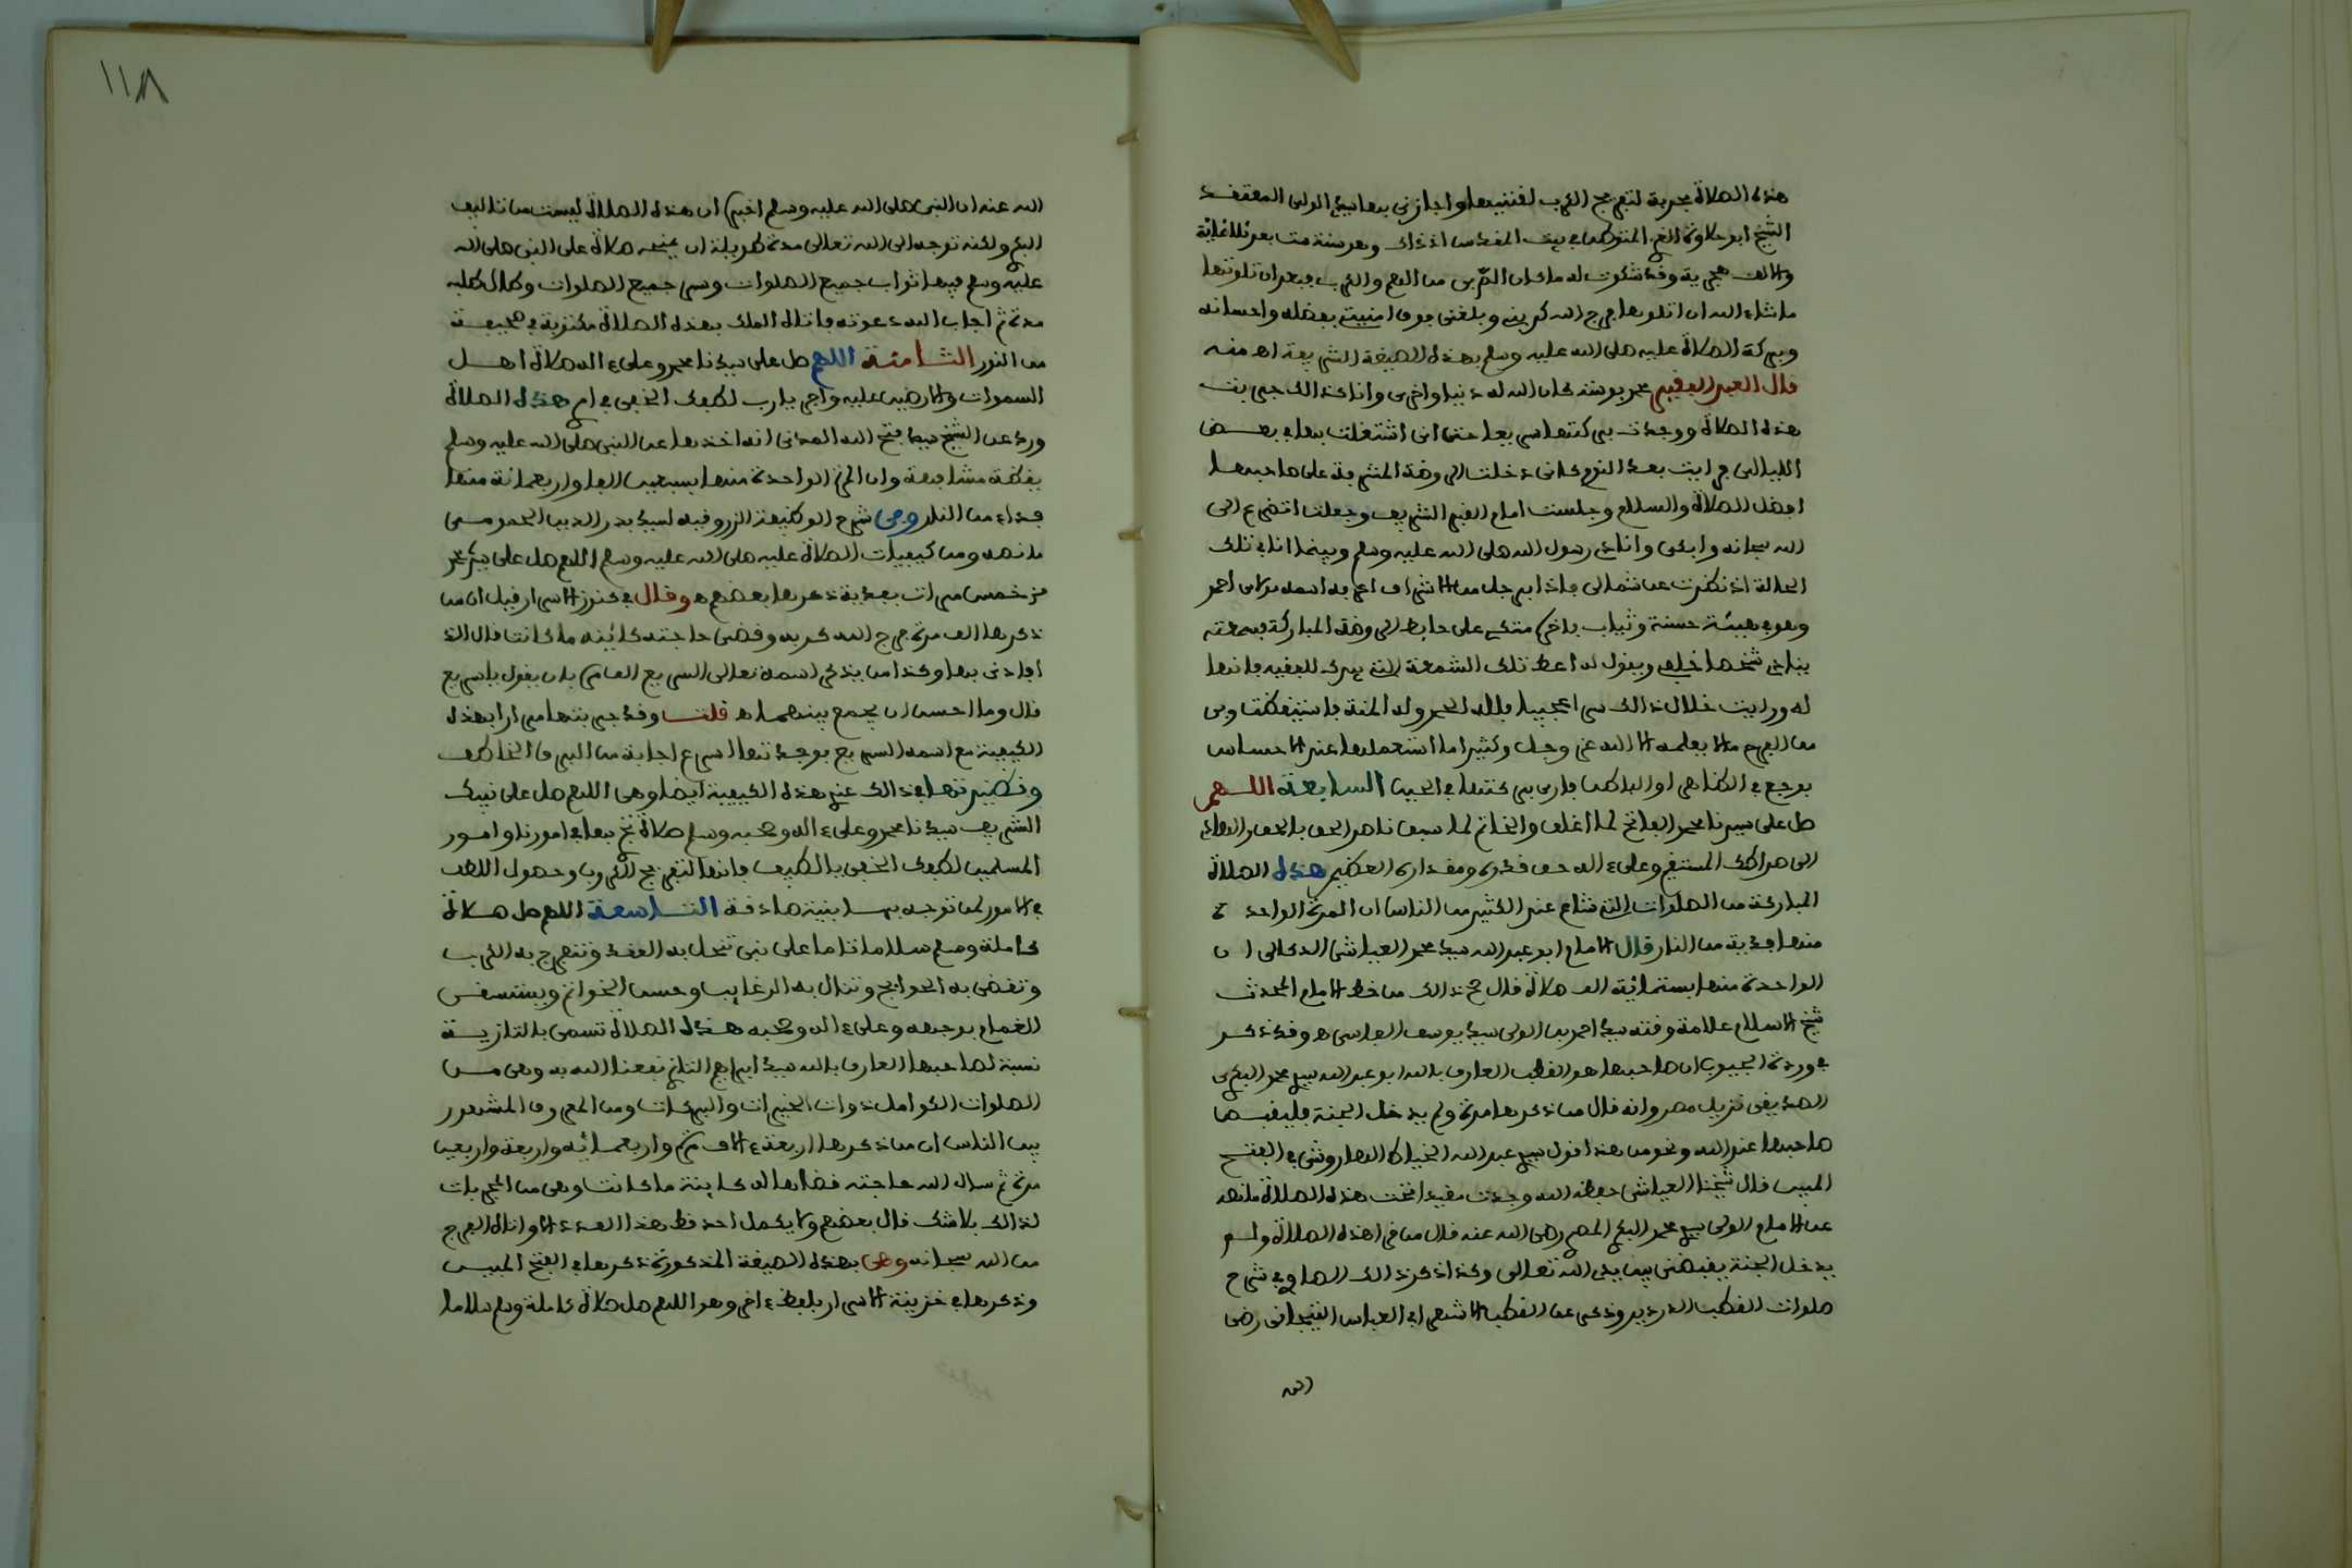 هذه الصلاة مجربة لتفريج الكرب لقننيها واجازني بها سيدي الولي المعتقد
الشيخ ابو حلاوة الغزي المتوطن في بيت المقدس اذ ذاك وهو سنة ست بعد ثلاثمائة
والف هجرية وقد شكوت له ما كان اكربني من الهم والكرب فبعد ان تلوتها
ما شاء الله ان اتلوها فرج الله كربي وبلغني فوق امنيتي بفضله واحسانه
وبركة الصلاة عليه صلى الله عليه وسلم بهذه الصيغة الشريفة اهـ منه
قال العبد الفقير محمد بوسته كان الله له دنيا واخرى وانا كذالك جربت
هذه الصلاة ووجدت بركتها سريعا حتى اني اشتغلت بها في بعض
الليالي فرايت بعد النوم كاني دخلت الروضة المشرفة على صاحبها
افضل الصلاة والسلام وجلست امام القبر الشريف وجعلت اتضرع الى
الله سبحانه وابكي وانادي رسول الله صلى الله عليه وسلم وبينما انا في تلك
الحالة اذ نظرت عن شمالي فاذا برجل من الاشراف اعرفه اسمه مولاي احمد
وهو في هيئة حسنة وثياب فاخرة متكئ على حايط الروضة المباركة فسمعته
ينادي شخصا خلفه ويقول له اعط تلك الشمعة التي بيدك للفقيه فانها
له ورايت خلال ذالك سرا عجيبا فلله الحمد وله المنة فاستيقظت وبي
من الفرح ما لا يعلمه الا الله عز وجل وكثيرا ما استعملها عند الاحساس
بوجع في الظاهر او الباطن فارى بركتها في الحين السابعة اللهم
صل على سيدنا محمد الفاتح لما اغلق والخاتم لما سبق ناصر الحق بالحق والهادي
الى صراطك المستقيم وعلى ءاله حق قدره ومقداره العظيم هذه الصلاة
المباركة من الصلوات التي شاع عند الكثير من الناس ان المرة الواحدة
منها فدية من النار قال الامام ابو عبد الله سيدي محمد العياشي الدكالي ان
الواحدة منها بستمائة الف صلاة قال صح ذالك من خط الامام المحدث
شيخ الاسلام علامة وقته سيدي احمد بن الولي سيدي يوسف الفاسي اهـ وقد ذكر
في وردة الجيوب ان صاحبها هو القطب العارف بالله ابو عبد الله سيدي محمد البكري
الصديقي نزيل مصر وانه قال من ذكرها مرة ولم يدخل الجنة فليقبض
صاحبها عند الله ونحو من هذا قول سيدي عبد الله الخياط الهاروشي في الفتح
المبين قال شيخنا العياشي حفظه الله وجدت مقيدا تحت هذه الصلاة ما نصه
عن الامام الولي سيدي محمد البكري المصري رضي الله عنه قال من قرا هذه الصلاة ولم
يدخل الجنة يقبضني بين يدي الله تعالى وكذا ذكر ذالك الصاوي في شرح
صلوات القطب الدردير وذكر عن القطب الاشهر ابي العباس التيجاني رضي
الله
١١٨
الله عنه ان النبي صلى الله عليه وسلم اخبره ان هذه الصلاة ليست من تاليف
البكري ولكنه توجه الى الله تعالى مدة طويلة ان يمنحه صلاة على النبي صلى الله
عليه وسلم فيها ثواب جميع الصلوات وسر جميع الصلوات وطال طلبه
مدة ثم اجاب الله دعوته فاتاه الملك بهذه الصلاة مكتوبة في صحيفة
من النور الثامنة اللهم صل على سيدنا محمد وعلى ءاله صلاة اهل
السموات والارضين عليه واجر يارب لطفك الخفي في امري هذه الصلاة
ورد عن الشيخ سيدي فتح الله المدني انه اخذها عن النبي صلى الله عليه وسلم
يقظة مشافهة وان المرة الواحدة منها بسبعين الفا واربعمائة منها
فداء من النار وفي شرح الوظيفة الزروقية لسيدي بدر الدين الحمومي
ما نصه ومن كيفيات الصلاة عليه صلى الله عليه وسلم اللهم صل على سيدنا محمد
مر خمس مرات بعد بقة ذكرها بعضهم اهـ وقال في كنوز الاسرار قيل ان من
ذكرها الف مرة فرج الله كربه وقضى حاجته كائنة ما كانت قال الذي
افادني بها وكذا من يذكر اسمه تعالى السريع العامر بان يقول ياسريع
قال وما احسن ان يجمع بينهما اهـ قلت وقد جربتها مرارا بهذه
الكيفية مع اسمه السريع فوجدتها اسرع اجابة من البرق الخاطف
ونظيرتها في ذالك عندي هذه الكيفية ايضا وهي اللهم صل على نبيك
الشريف سيدنا محمد وعلى ءاله وصحبه وسلم صلاة تنجح بها في امورنا وامور
المسلمين لطفك الخفي يا لطيف فانها لتفريج الكروب وحصول اللطف
في الامور لمن توجه بها بنية صادقة التاسعة اللهم صل صلاة
كاملة وسلم سلاما تاما على نبي تنحل به العقد وتنفرج به الكرب
وتقضى به الحوايج وتنال به الرغايب وحسن الخواتم ويستسقى
الغمام بوجهه وعلى ءاله وصحبه هذه الصلاة تسمى بالتازية
نسبة لصاحبها العارف بالله سيدي ابراهيم التازي نفعنا الله به وهي من
الصلوات الكوامل ذوات الخيرات والبركات ومن المعروف المشهور
بين الناس ان من ذكرها اربعة ءالاف مرة واربعمائه واربعة واربعين
مرة ثم سال الله حاجته قضاها له كاينة ما كانت وهي من المجربات
لذالك بلا شك قال بعضهم ولا يكمل احد قط هذا العدد الا واتاه الفرج
من الله سبحانه وهي بهذه الصيغة المذكورة ذكرها في الفتح المبين
وذكرها في خزينة الاسرار بلفظ ءاخر وهو اللهم صل صلاة كاملة وسلم سلاما